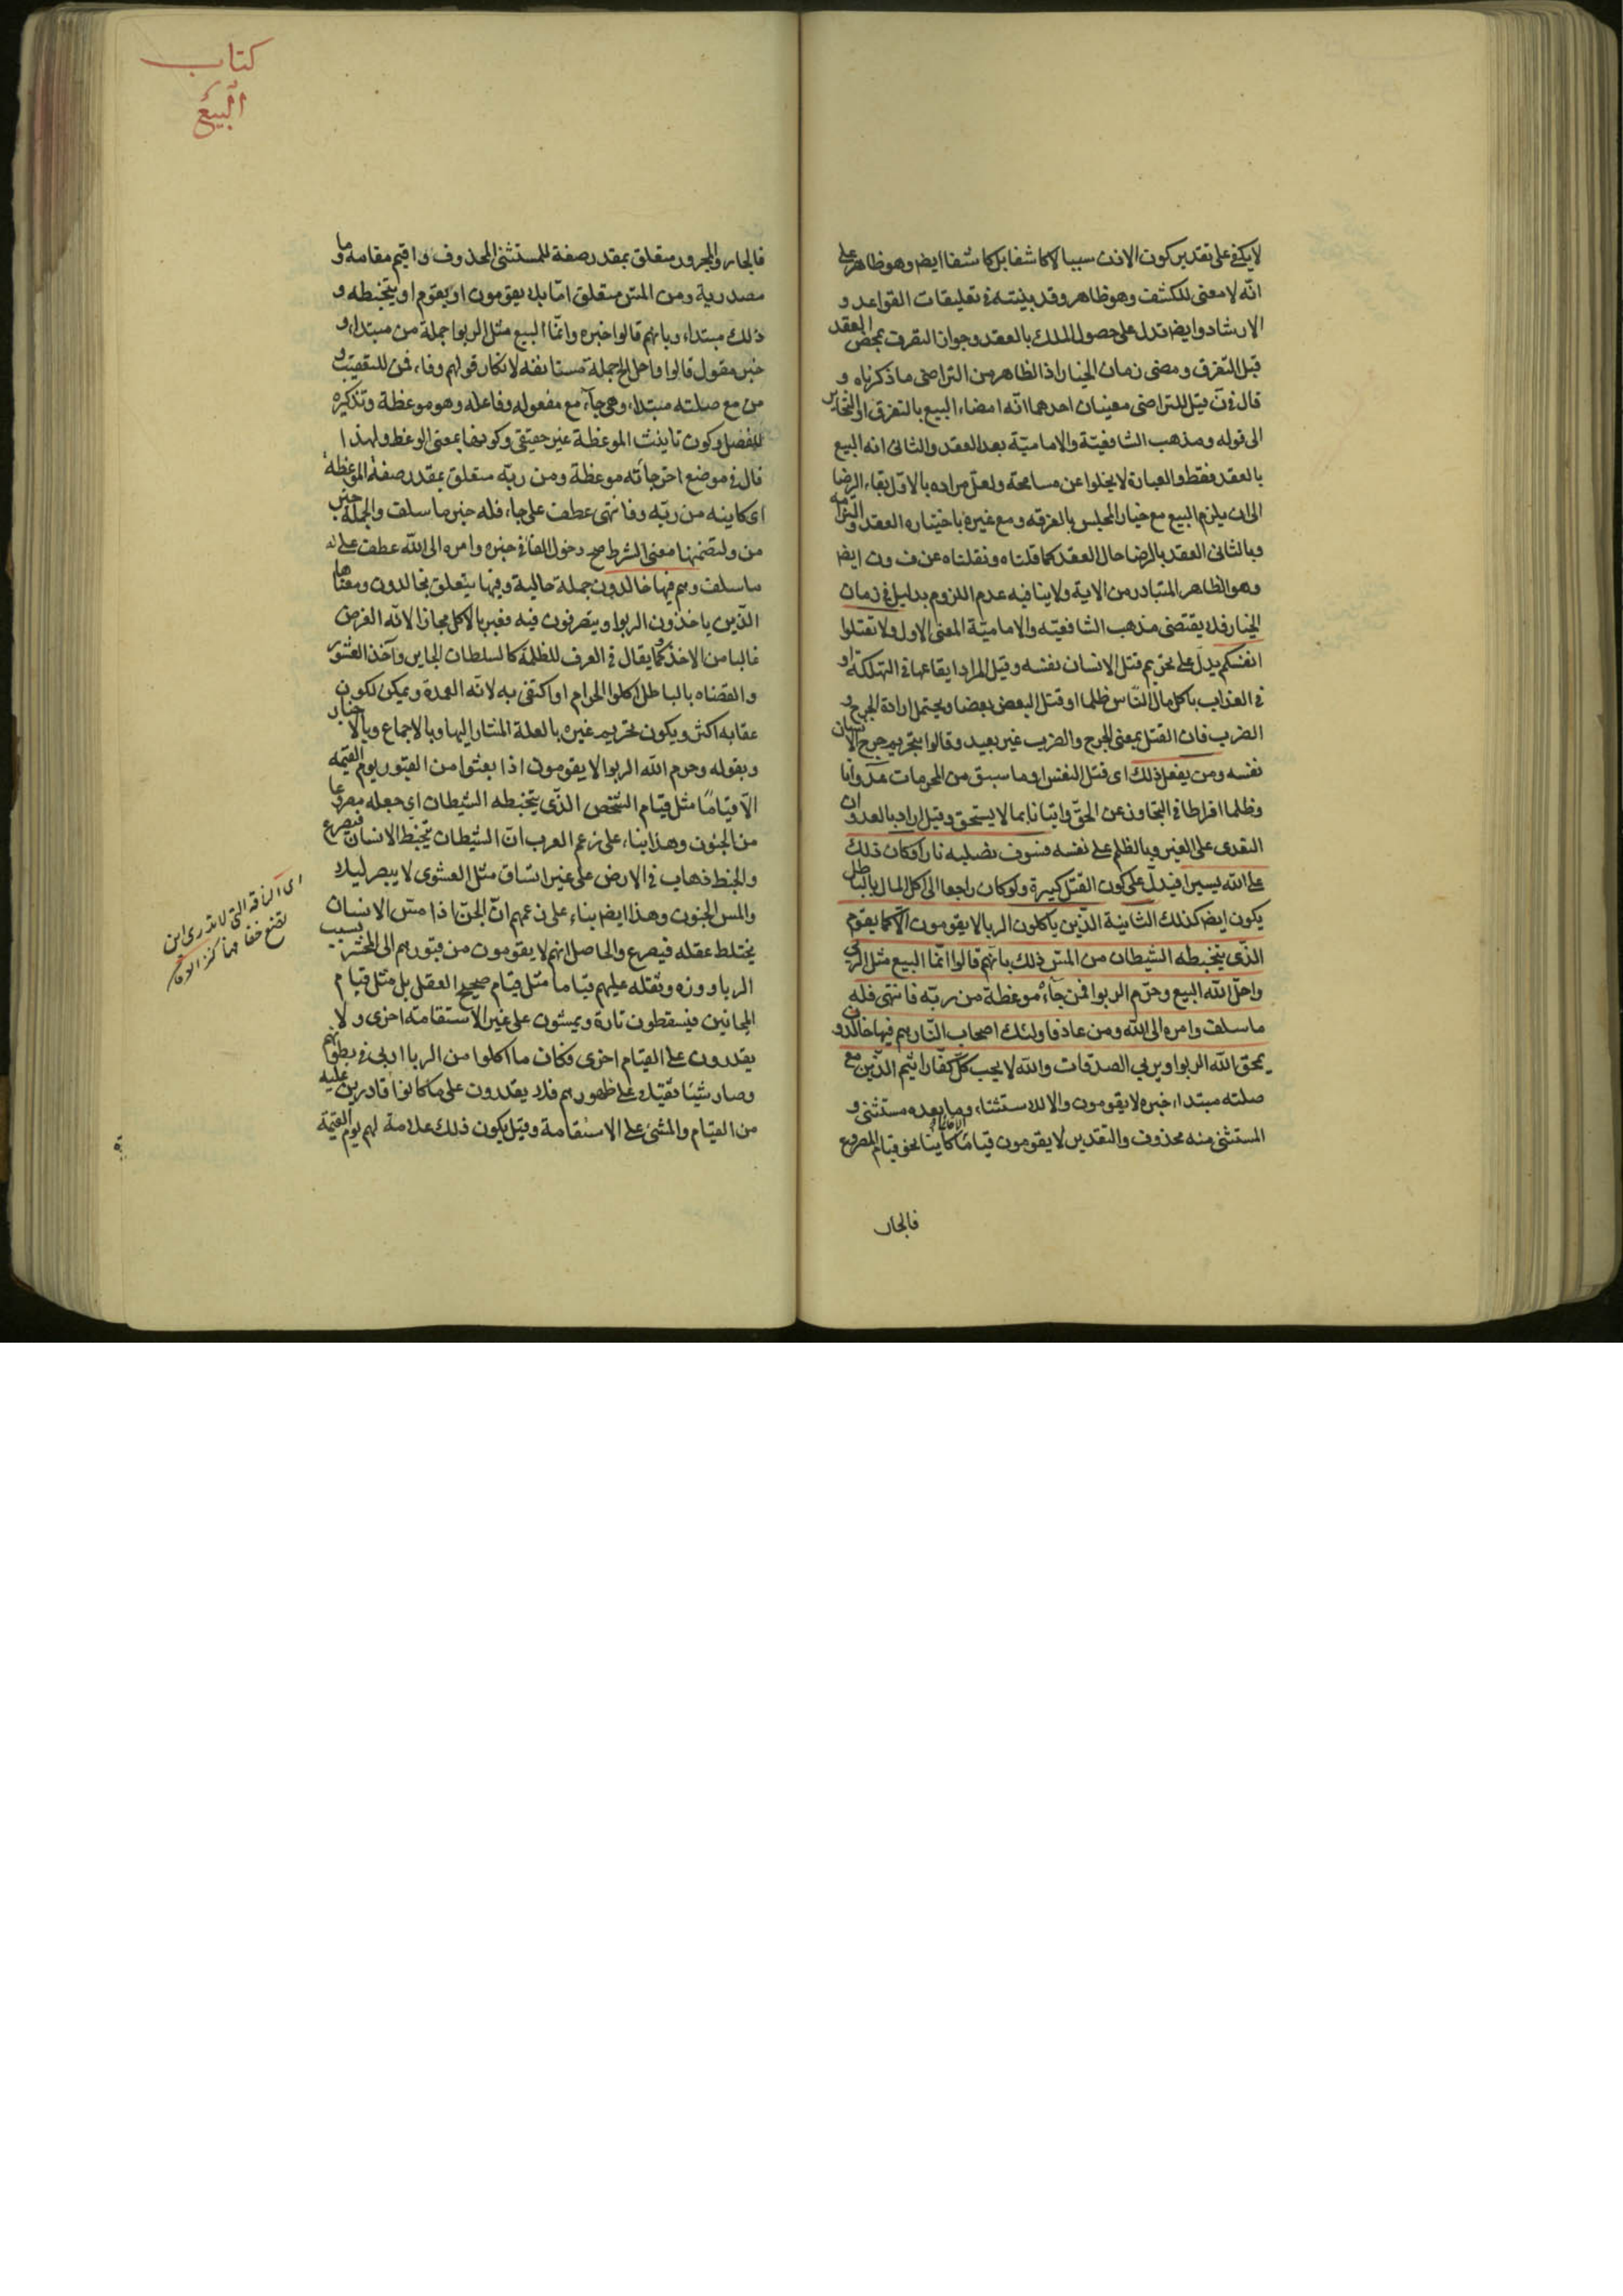 لا يكفى على تقدير كون الاذن سببا لا كاشفا بل كاشفا ايضا وهو ظاهر على
انّه لا معنى للكشف وهو ظاهر وقد بينته فى تعليقات القواعد و
الارشاد وايضا تدل على حصول الملك بالعقد وجواز التصرف بمحض العقد
قبل التفرق ومضى زمان الخيار اذ الظاهر من التراضى ما ذكرناه و
قال فى ن قيل للتراضى معنيان احدهما انّه امضاء البيع بالتفرق او التخاير
الى قوله ومذهب الشافعيّة والاماميّة بعد العقد والثانى انه البيع
بالعقد فقط والعبارة لا يخلوا عن مسامحة ولعل مراده بالاول بقاء الرضا
الى ان يلزم البيع مع خيار المجلس بالفرقه ومع غيره باختياره العقد والتزامه
وبالثانى العقد بالرضا حال العقد كما قلناه ونقلناه عن ف ون ايضا
وهو الظاهر المتبادر من الاية ولا ينافيه عدم اللزوم بدليل فى زمان
الخيار فلا يقتضى مذهب الشافعيّه والاماميّة المعنى الاول ولا تقتلوا
انفسكم يدلّ على تحريم قتل الانسان نفسه وقيل المراد ايقاعها فى التهلكة او
فى العذاب باكل مال النّاس ظلما او قتل البعض بعضا ويحتمل ارادة الجرح و
الضرب فان القتل بمعنى الجرح والضرب غير بعيد وقالوا بتحريم جرح الانسان
نفسه ومن يفعل ذلك اى قتل النفس او ما سبق من المحرمات عدوانا
وظلما افراطا فى التجاوز عن الحقّ واتيانا بما لا يستحق وقيل اراد بالعدوان
التعدى على الغير وبالظلم على نفسه فسوف نصليه نارا وكان ذلك
على الله يسيرا فيدلّ على كون القتل كبيرة ولو كان راجعا الى اكل المال بالباطل
يكون ايضا كذلك الثانية الّذين ياكلون الربا لا يقومون الّا كما يقوم
الذّى يتخبطه الشيطان من المسّ ذلك بانّهم قالوا انّما البيع مثل الربى
واحلّ الله البيع وحرّم الربوا فمن جاءه موعظة من ربّه فانتهى فله
ما سلف وامره الى الله ومن عاد فاولئك اصحاب النّار هم فيها خالدون
يمحق الله الربوا ويربي الصدقات والله لا يحب كلّ كفّار اثيم الذّين مع
صلته مبتداء خبره لا يقومون والا للاستثناء وما بعده مستثنى و
المستثنى منه محذوف والتقدير لا يقومون قياما الا قياما كاينا نحو قيام المصروع
فالجار
كتاب
البيع
فالجار والمجرور متعلق بمقدر صفة للمستثنى المحذوف واقيم مقامه وما
مصدرية ومن المسّ متعلق امّا بلا يقومون او يقوم او يتخبطه و
ذلك مبتداء وبانهم قالوا خبره وانّما البيع مثل الربوا جملة من مبتداء و
خبر مقول قالوا واحل الخ جملة مستانفه لانكار قولهم وفاء فمن للتعقيب و
من مع صلته مبتداء وهى جاء مع مفعوله وفاعله وهو موعظة وتذكيره
للفصل وكون تانيث الموعظة غير حقيقى وكونها بمعنى الوعظ ولهذا
قال فى موضع اخر جاءته موعظة ومن ربّه متعلق بمقدر صفة الموعظة
اى كاينه من ربّه وفانتهى عطف على جاء فله خبر ما سلف والجملة خبر
من ولتضمنها معنى الشرط صح دخول الفا فى خبره وامره الى الله عطف على له
ما سلف وهم فيها خالدون جملة حالية وفيها يتعلق بخالدون ومعناها
الّذين ياخذون الربوا ويتصرفون فيه فعبر بالاكل مجازا لانّه الغرض
غالبا من الاخذ وكما يقال فى العرف للظلمة كالسلطان الجاير وآخذ العشور
والقضاه بالباطل اكلوا الحرام او اكتفى به لانّه العمدة ويمكن لكون
عقابه اكثر ويكون تحريم غيره بالعلة المشار اليها وبالاجماع وبالاخبار
وبقوله وحرم الله الربوا لا يقومون اذا بعثوا من القبور يوم القيمه
الّا قيامًا مثل قيام الشخص الذّى يتخبطه الشيطان اى جعله مصروعا
من الجنون وهذا بناء على زعم العرب انّ الشيطان يتخبط الانسان فيصرع
والخبط ذهاب فى الارض على غير اتساق مثل العشوى لا يبصر ليلا
والمس الجنون وهذا ايضا بناء على زعمهم انّ الجنّ اذا مسّ الانسان
يختلط عقله فيصرع والحاصل انهم لا يقومون من قبورهم الى المحشر بسبب
الربا ووزه وثقله عليهم قياما مثل قيام صحيح العقل بل مثل قيام
المجانين فيسقطون تارة ويمشون على غير الاستقامة اخرى ولا
يقدرون على القيام اخرى فكان ما اكلوا من الربا اربى فى بطونهم
وصار شيئا ثقيلا على ظهورهم فلا يقدرون على ما كانوا قادرين عليه
من القيام والمشى على الاستقامة وقيل يكون ذلك علامة لهم يوم القيمة
اى الناقة التى لا تدرى اين
تضع خفا فهما